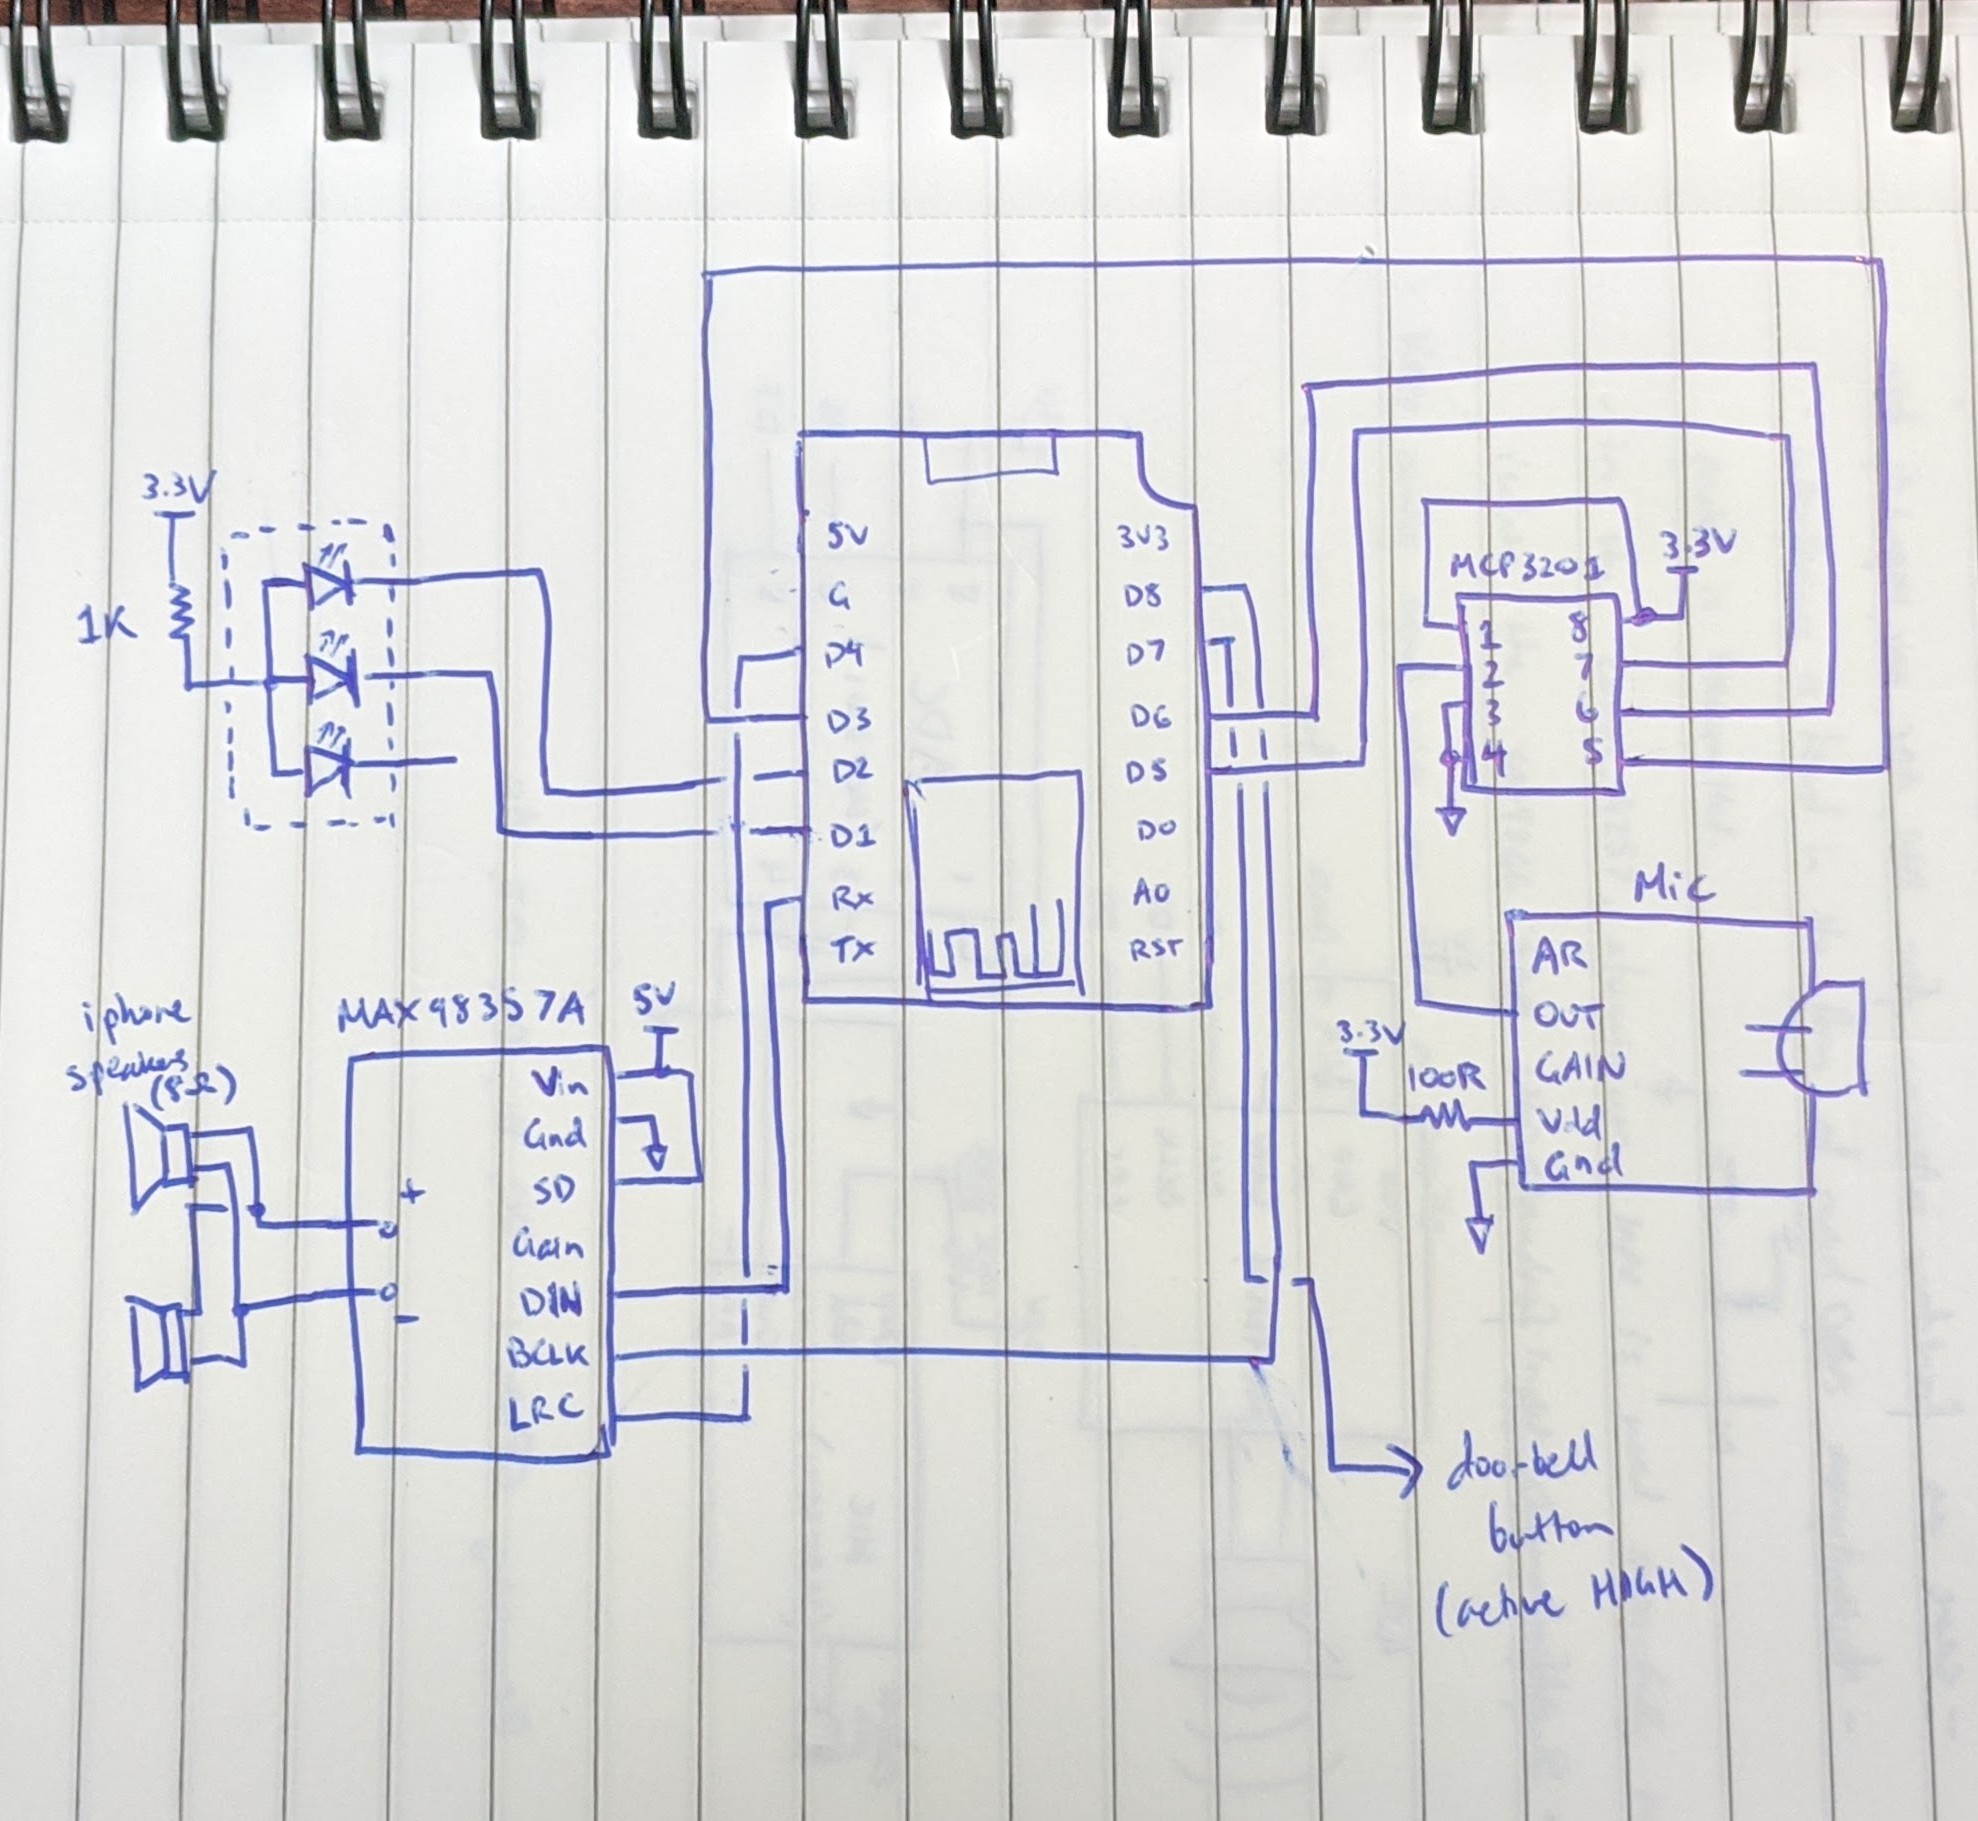 3.3V
1K
5V
G
D4
D3
D2
D1
Rx
TX
3V3
D8
D7
D6
D5
D0
A0
RST
MCP3201
3.3V
1
2
3
4
8
7
6
5
Mic
AR
OUT
GAIN
Vdd
Gnd
3.3V
100R
iphone
speakers
(8Ω)
MAX98357A
5V
Vin
Gnd
SD
Gain
DIN
BCLK
LRC
+
-
doorbell
button
(active HIGH)